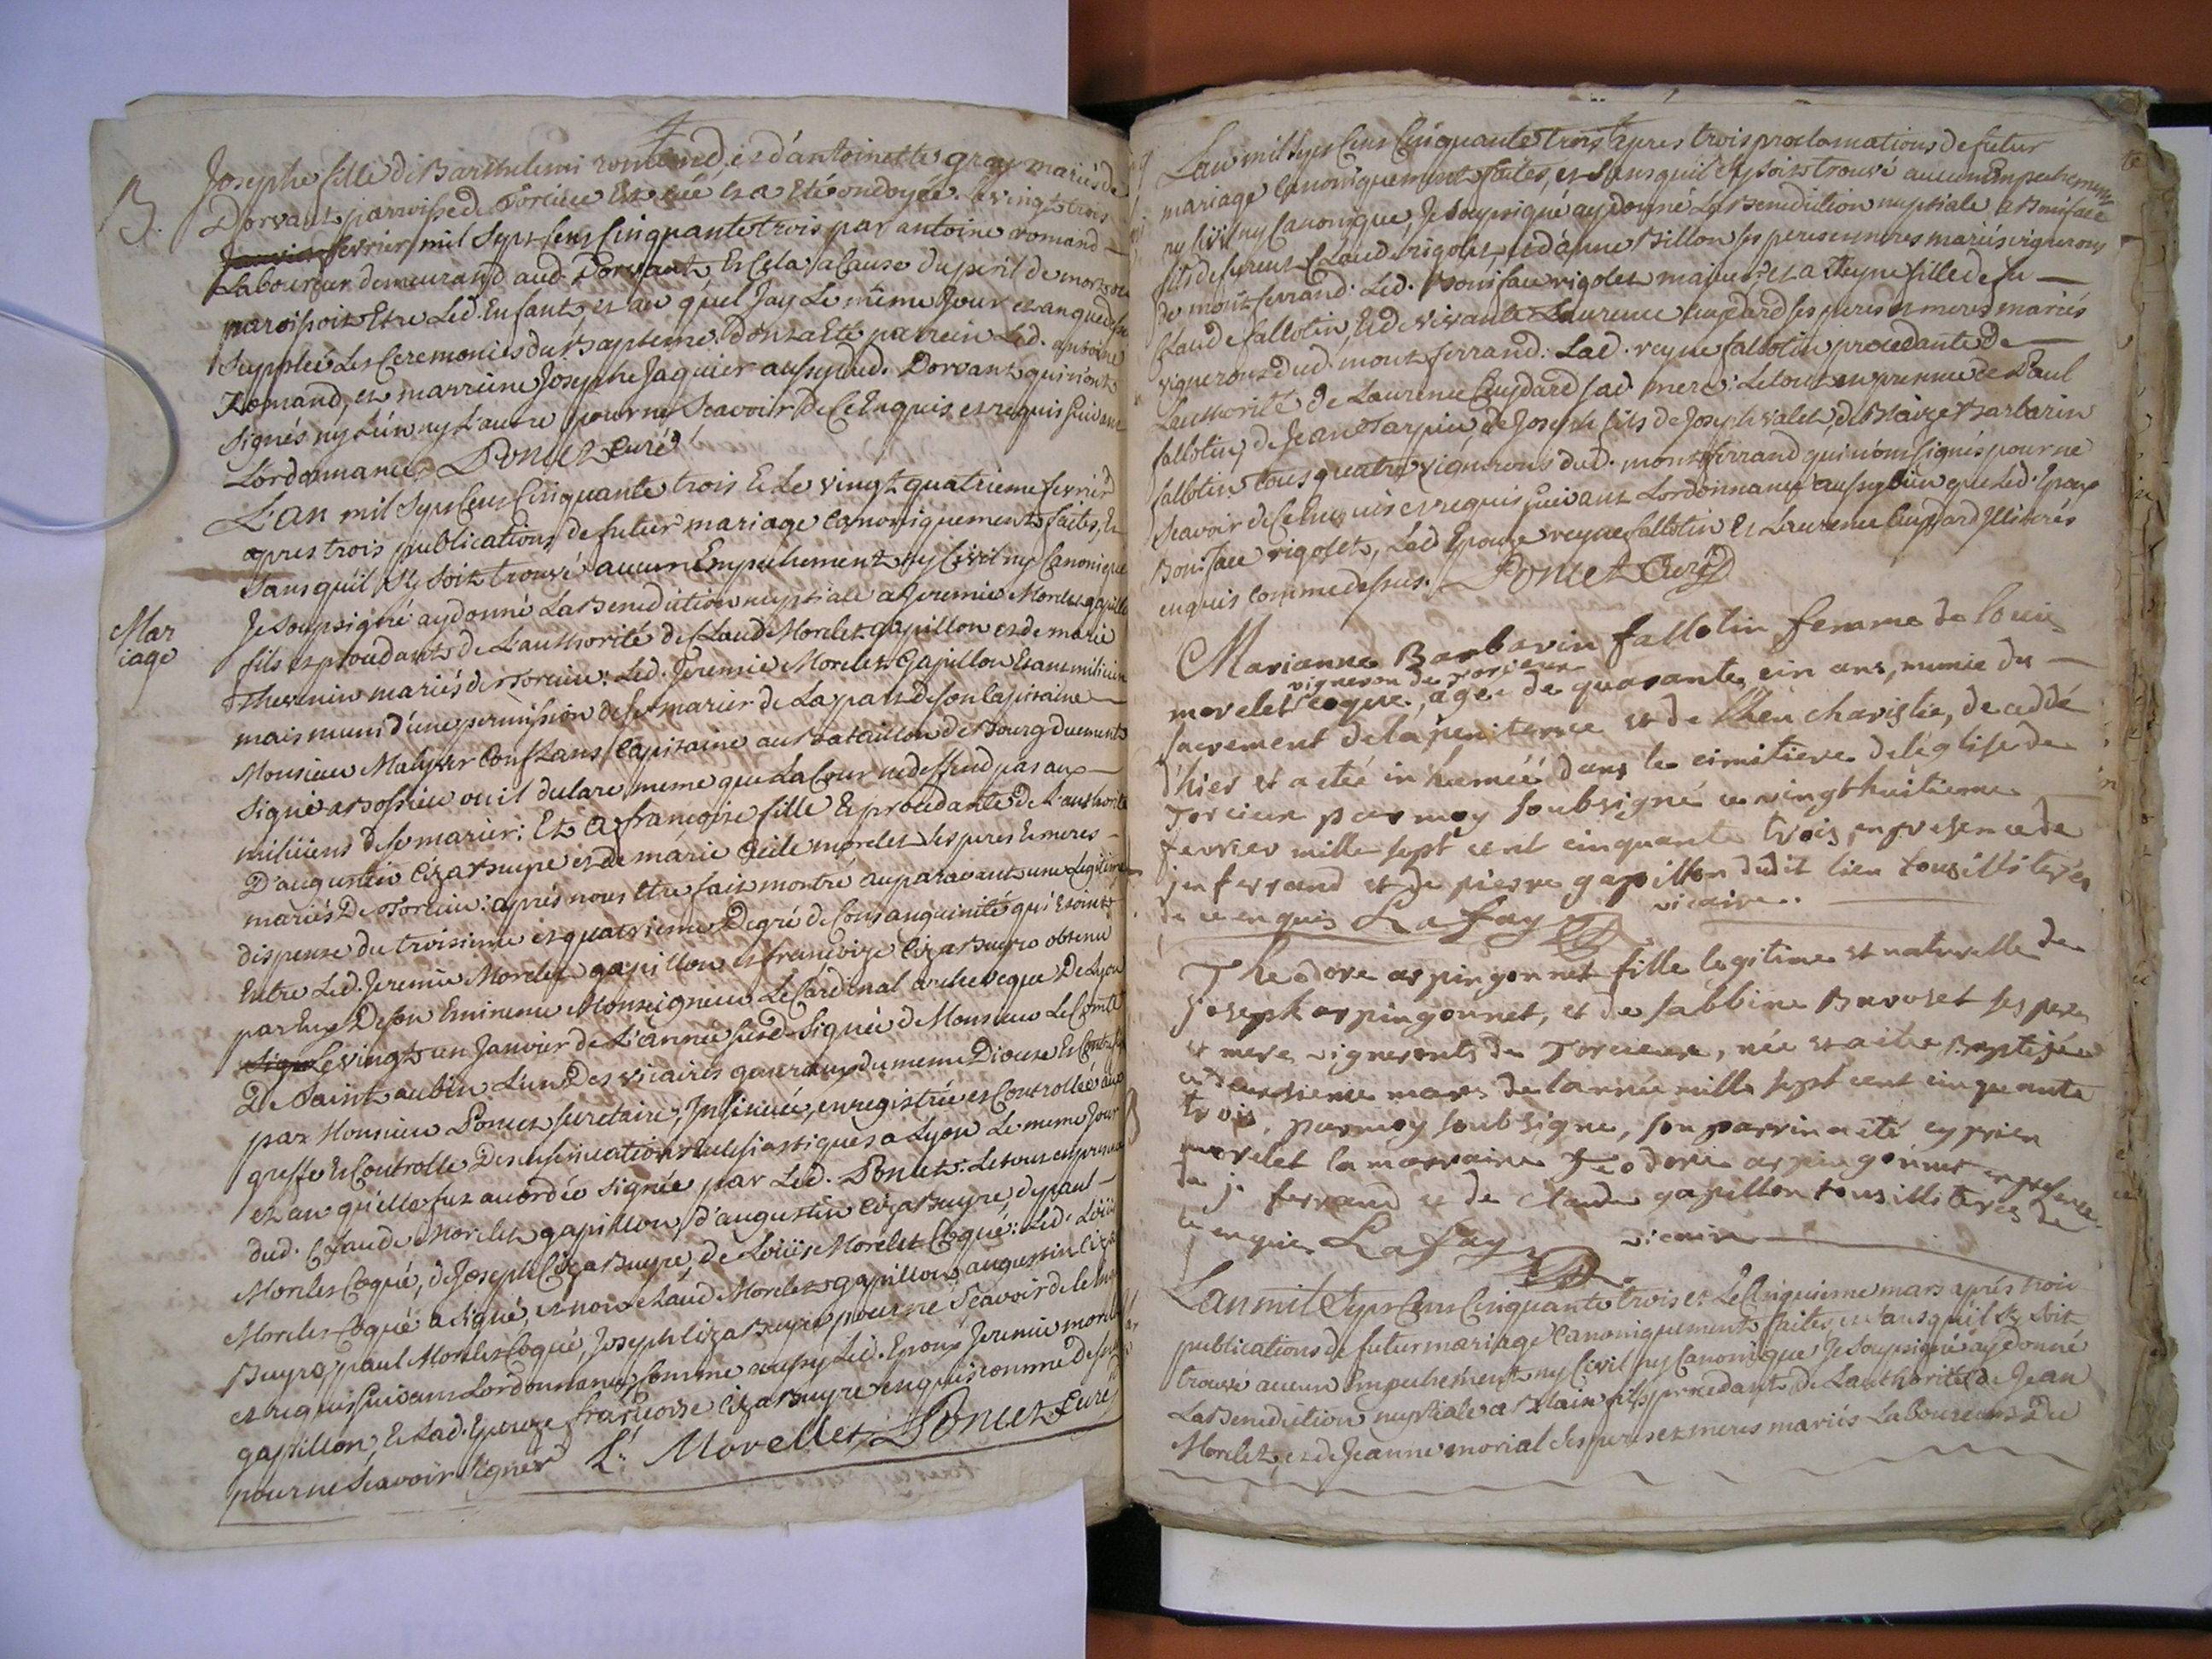 B. Josephe fille de Barthelemi romand, et d'antoinette gray mariés de
Dorvant parroisse de Torcieu Est née et a Eté ondoyée le vingt trois
janvier fevrier mil Sept Cens Cinquante trois par antoine romand
Laboureur demeurand aud. Dorvant, Et Cela a Cause du peril de mort ou
paroissoit Etre Led. Enfant, et au quel Jay Le même Jour et an que dessus
Supplée Les Ceremonies du Baptême. dont a Eté parrein Led. antoine
Romand, et marreine Josephe Jaquier aussy dud. Dorvant qui n'ont
signés ny L'un ny L'autre pour ne Scavoir de Ce Enquis et requis Suivant
L'ordonnance. Poncet Curé
L'an mil Sept Cens Cinquante trois Et Le vingt quatrieme fevrier
apres trois publications de futur mariage Canoniquement faites, Et
Sans qu'il S'y Soit trouvé aucun Empechement ny Civil ny Canonique
Mar
iage
Je Soussigné ay donné La Benediction nuptiale a Jeremie Morelet gapillon
fils et procedant de L'authorité de Claude Morelet gapillon et de marie
Thevenin mariés de Torcieu: Led. Jeremie Morelet Gapillon Etant milicien
mais muni d'une permission de se marier de La part de son Capitaine
Monsieur Constans Capitaine au Bataillon de Bourg duement
Signé ou il declare meme que La Cour ne deffend pas aux
miliciens de se marier: Et a françoise fille Et procedante de L'authorité
D'augustin Cizabuyre et de marie Cecile morelet Ses peres Et meres
mariés De Torcieu: aprés nous Etre fait montré auparavant une Legitime
dispense du troisieme et quatrieme Degré de Consanguinité qui Etoint
Entre Led. Jeremie Morelet gapillon et françoise Cizabuyre obtenu
par Eux De Son Eminence Monseigneur Le Cardinal archeveque De Lyon
Signé Le vingt un Janvier de L'année susd. Signée de Monsieur Le Comte
De Saint aubin L'un Des vicaires generaux du meme Diocese Et
par Monsieur Poncet Secretaire, Insinuée, enregistrée et Controllée au
greffe Et Controlle Des insinuations Ecclesiastiques a Lyon Le meme Jour
et an qu'elle fut accordée signée par Led. Poncet. Le tout en presence
dud. Claude Morelet gapillon, d'augustin Cizabuyre, de paul
Morelet Coqué, de Joseph Cizabuyre, de Loüis Morelet Coqué: Led. Loüis
Morelet Coqué a Signé, et non Claude Morelet gapillon, augustin Ciza
Buyre, paul Morelet Coqué, Joseph Cizabuyre pour ne Scavoir de Ce
et requis Suivant L'ordonnance, Comme aussy Led. Epoux Jeremie morelet
gapillon, Et Lad. Epouze françoise Cizabuyre enquis comme dessus
pour ne Scavoir Signer L. Morellet Poncet Curé
L'an mil Sept Cens Cinquante trois apres trois proclamations de futur
mariage Canoniquement faites, et Sans qu'il S'y Soit trouvé aucun Empechement
ny Civil ny Canonique, Je Soussigné ay donné La Benediction nuptiale a Boniface
fils de feu Claude rigolet et d'anne Billon Ses pere et meres mariés vignerons
de montferrand. Led. Boniface rigolet majeur, et a Reyne fille de feu
Claude fallotin, Et de vivante Laurence Cuzdard Ses peres et meres mariés
vignerons dud. montferrand. Lad. reyne fallotin procedante de
L'authorité de Laurence Cuzdard Sad. mere: Le tout en presence de Paul
fallotin, de Jean Tarpin, de Joseph fils de Joseph valet, de Blaize Barbarin
fallotin tous quatre vignerons dud. montferrand qui n'ont signés pour ne
Scavoir de Ce Enquis et requis Suivant L'ordonnance, aussy bien que Led. Epoux
Boniface rigolet, Lad. Epouze reyne fallotin Et Laurence Cuzdard Illiterés
enquis comme dessus. Poncet Curé
Marianne Barbarin fallotin femme de louis
vigneron de torcieu
morelet coque, agée de quarante cin ans, munie du
sacrement de la penitence et de l'heucharistie, decedde
d'hier et a eteé inhumeé dans le cimitiere de leglise de
Torcieu par moy soubsigné ce vingthuitieme
fevrier mille sept cent cinquante trois, en presence de
j'en ferrand et de pierre gapillon dudit lieu tous illiterés
de ce enquis Lafay vicaire.
Theodore arpingonnet fille legitime et naturelle de
joseph arpingonnet, et de sabbine Bavoset ses pere
et mere vignerons de Torcieu, née et a ité Baptisée
ce deuxieme mars de lannée mille sept cent cinquante
trois, par moy soubsigne, son parrin a eté cyprien
morelet la marraine Teodore arpingonnet en presence
de j. ferrand et de claude gapillon tous illiterés de
ce enquis Lafay vicaire
L'an mil Sept Cens Cinquante trois et Le Cinquieme mars aprés trois
publications de futur mariage Canoniquement faites, et Sans qu'il S'y Soit
trouvé aucun Empechement ny Civil ny Canonique Je Soussigné ay donné
La Benediction nuptiale a Blain fils procedant de L'authorité de Jean
Morelet, et de Jeanne morial Ses peres et meres mariés Laboureurs Du